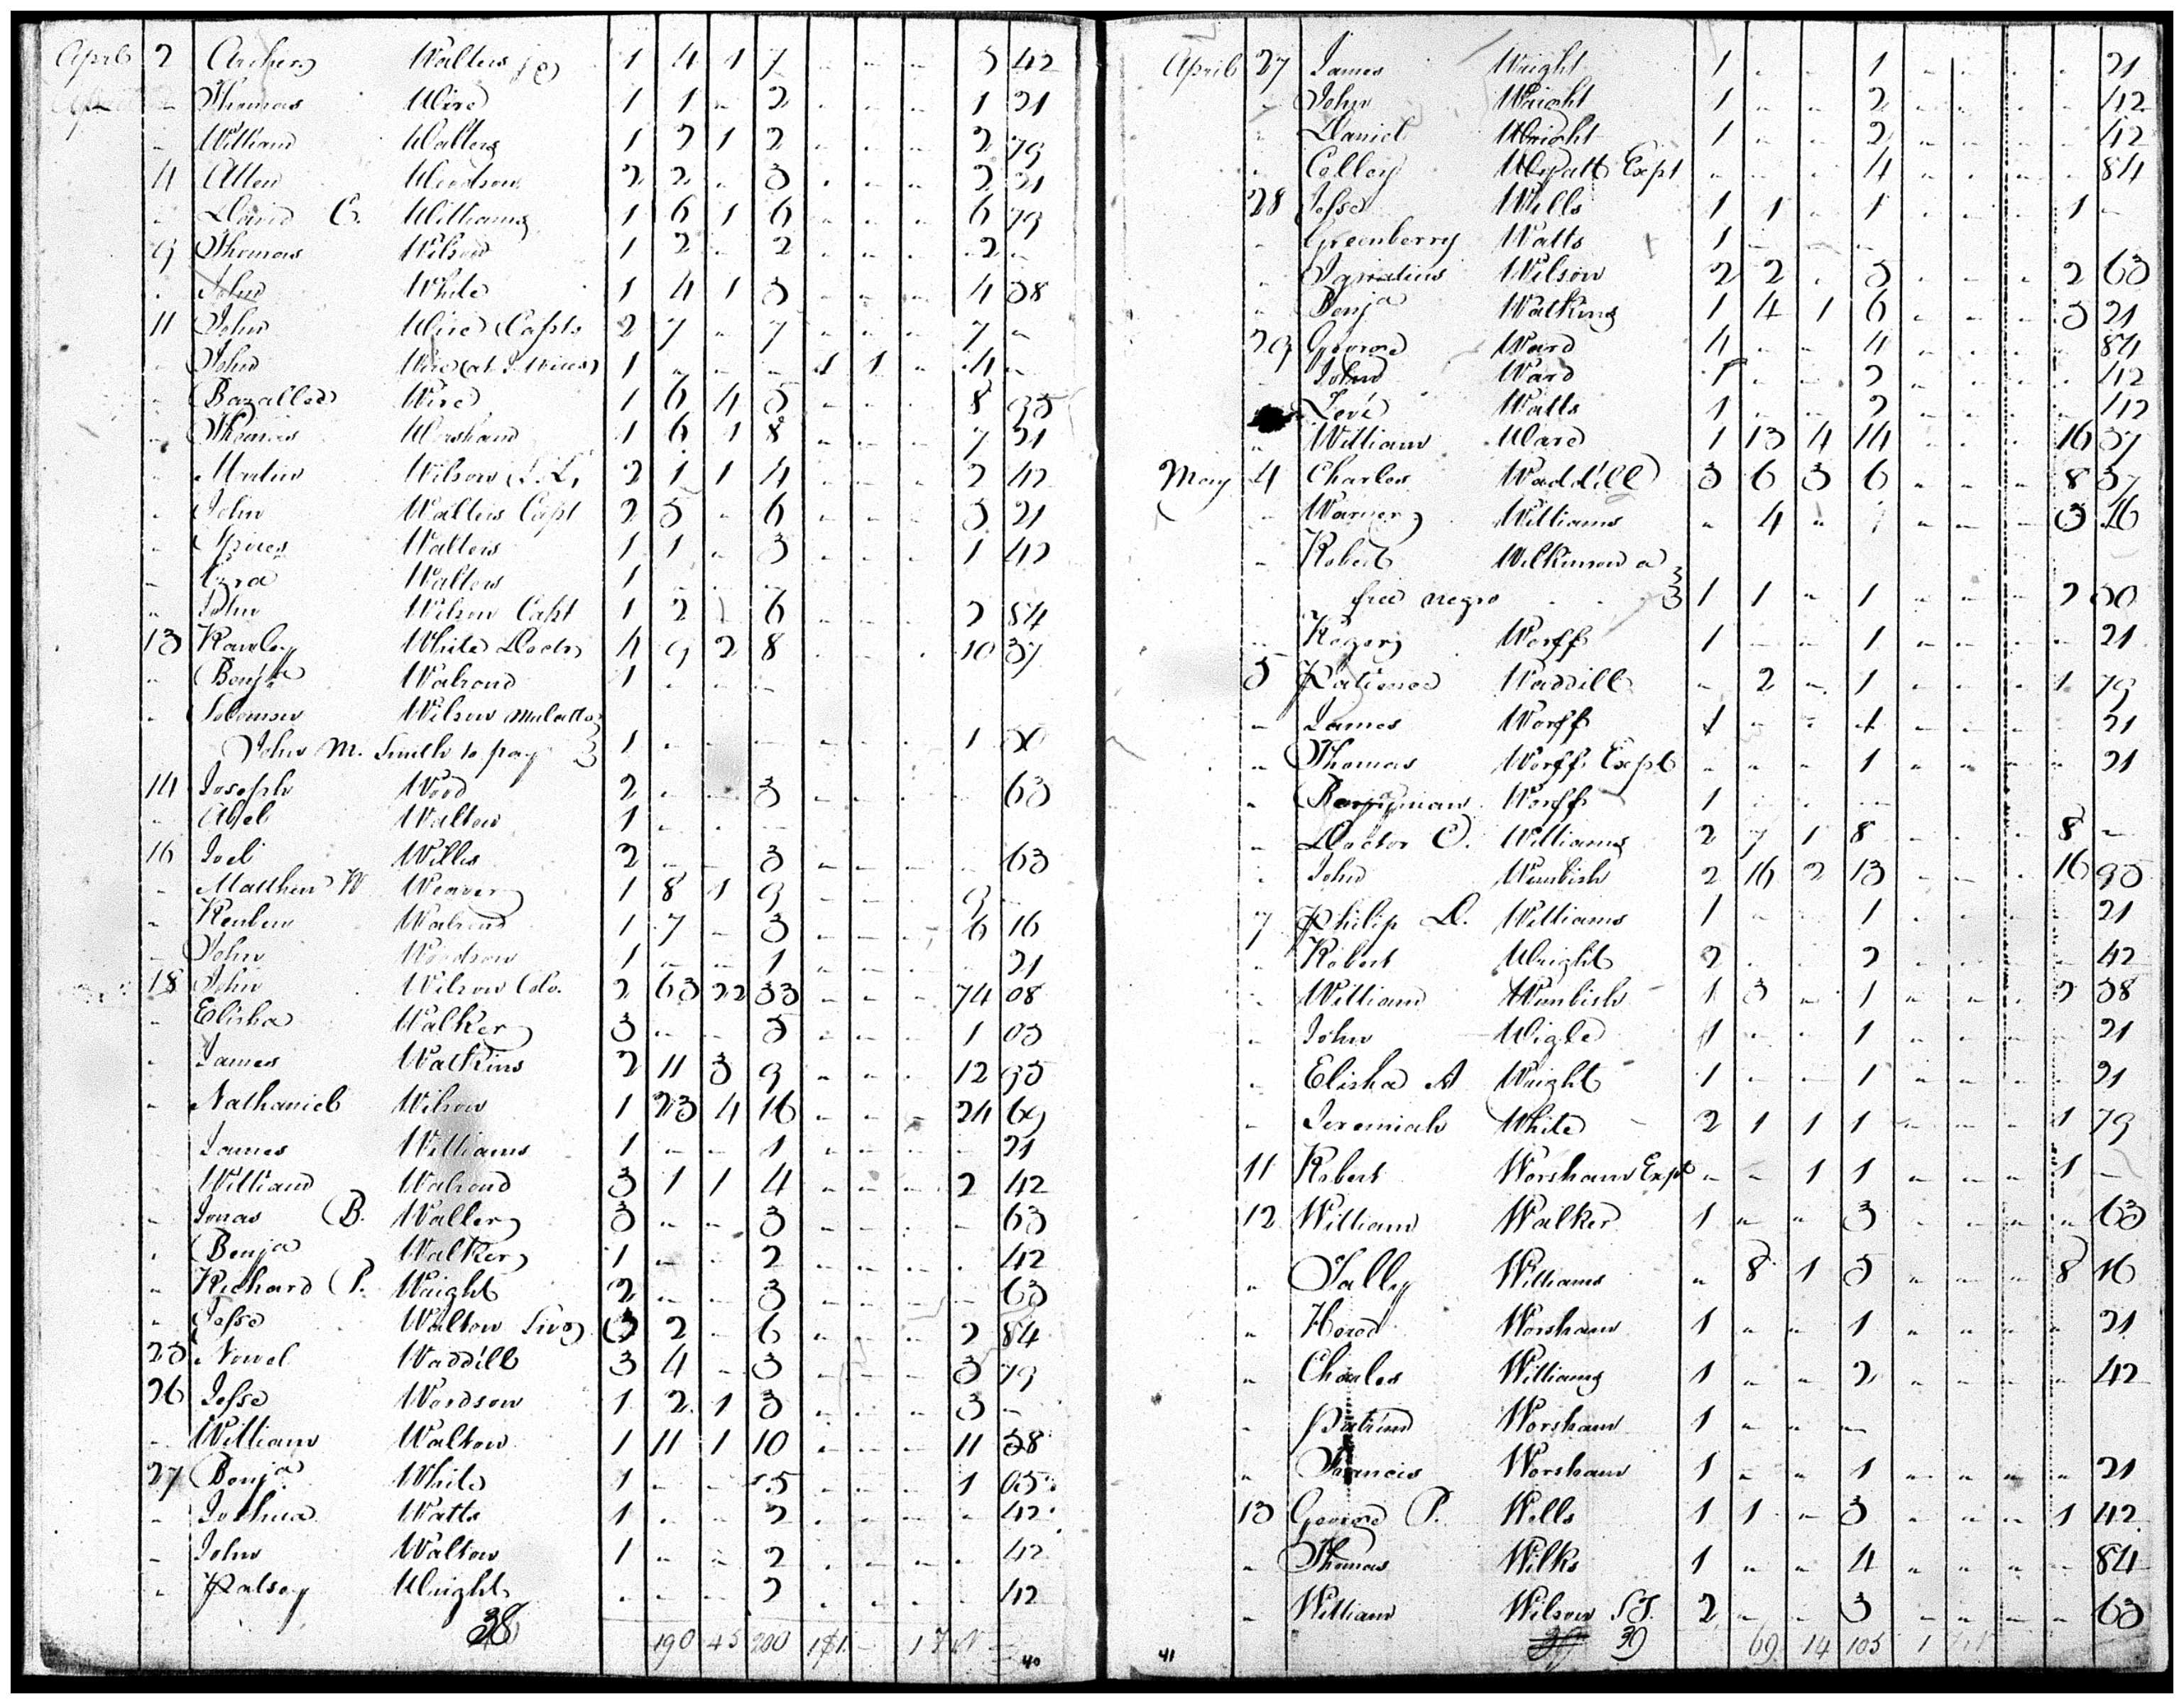 April 2 Archer Walters 1 4 1 7 " " " 5 42
" Thomas Wire 1 1 " 2 " " " 1 21
" William Walters 1 2 1 2 " " " 2 79
4 Allen Woodson 2 2 " 3 " " " 2 21
" David C. Williams 1 6 1 6 " " " 6 79
9 Thomas Wilson 1 2 " 2 " " " 2 "
" John White 1 4 1 3 " " " 4 38
11 John Wire Capt 2 7 " 7 " " " 7 "
" John Wire 1 " " " 1 1 " 4 "
" Bazalled Wire 1 6 4 5 " " " 8 95
" Thomas Worsham 1 6 1 8 " " " 7 21
" Martin Wilson S.L. 2 1 1 4 " " " 2 42
" John Walters Capt 2 5 " 6 " " " 5 21
" Spires Walters 1 1 " 3 " " " 1 42
" Ezra Walters 1 " " "
" John Wilson Capt 1 2 " 6 " " " 2 84
13 Rawley White Doctr 4 9 2 8 " " " 10 37
" Benja Walrond 1 " " "
" Solomon Wilson Mulatto
John M. Smith to pay 1 " " " " " " 1 50
14 Joseph Wood 2 " " 3 " " " " 63
" Abel Walton 1 " " "
16 Joel Willis 2 " " 3 " " " " 63
" Matthew W Weaver 1 8 1 9 " " " 9 "
" Reuben Walrond 1 7 " 3 " " " 6 16
" John Woodson 1 " " 1 " " " " 21
18 John Wilson Colo. 2 63 22 33 " " " 74 08
" Elisha Walker 3 " " 5 " " " 1 05
" James Watkins 2 11 3 9 " " " 12 95
" Nathaniel Wilson 1 23 4 16 " " " 24 69
" James Williams 1 " " 1 " " " " 21
" William Walrond 3 1 1 4 " " " 2 42
" Jonas B. Waller 3 " " 3 " " " " 63
" Benja Walker 1 " " 2 " " " " 42
" Richard P. Wright 2 " " 3 " " " " 63
" Jesse Walton 3 2 " 6 " " " 2 84
25 Nowel Waddill 3 4 " 3 " " " 3 79
26 Jesse Woodson 1 2 1 3 " " " 3 "
" William Walton 1 11 1 10 " " " 11 38
27 Benja White 1 " " 5 " " " 1 05
" Joshua Watts 1 " " 2 " " " " 42
" John Walton 1 " " 2 " " " " 42
" Patsey Wright " " " 2 " " " " 42
38 190 45 200
40
April 27 James Wright 1 " " 1 " " " " 21
" John Wright 1 " " 2 " " " " 42
" Daniel Wright 1 " " 2 " " " " 42
" Colley Wyatt Expt " " " 4 " " " " 84
28 Jesse Wills 1 1 " 1 " " " 1 "
" Greenberry Watts 1 " " "
" Ignatius Wilson 2 2 " 3 " " " 2 63
" Benja Watkins 1 4 1 6 " " " 5 21
29 George Ward 4 " " 4 " " " " 84
" John Ward 1 " " 2 " " " " 42
Levi Watts 1 " " 2 " " " " 42
" William Ware 1 13 4 14 " " " 16 37
May 4 Charles Waddill 3 6 3 6 " " " 8 37
" Warner Williams " 4 " " " " 3 16
" Robert Wilkinson a
free negro 1 1 " 1 " " " 2 50
" Roger Worff 1 " " 1 " " " " 21
5 Patience Waddill " 2 " 1 " " " 1 79
" James Worff 1 " " 1 " " " " 21
" Thomas Worff Expt " " " 1 " " " " 21
" Benjiman Worff 1 " " "
" Doctor C. Williams 2 7 1 8 " " " 8 "
" John Wimbish 2 16 2 13 " " " 16 95
7 Philip D. Williams 1 " " 1 " " " " 21
" Robert Wright 2 " " 2 " " " " 42
" William Wimbish 1 3 " 1 " " " 2 38
" John Wigle 1 " " 1 " " " " 21
" Elisha A Wright 1 " " 1 " " " " 21
" Jeremiah White 2 1 1 1 " " " 1 79
11 Robert Worsham Expt " " 1 1 " " " 1 "
12 William Walker 1 " " 3 " " " " 63
" Salley Williams " 8 1 5 " " " 8 16
" Herod Worsham 1 " " 1 " " " " 21
" Charles Williams 1 " " 2 " " " " 42
" Worsham 1 " " "
" Francis Worsham 1 " " 1 " " " " 21
13 George P. Wells 1 1 " 3 " " " 1 42
" Thomas Wilks 1 " " 4 " " " " 84
" William Wilson S.T. 2 " " 3 " " " " 63
39 69 14 105
41